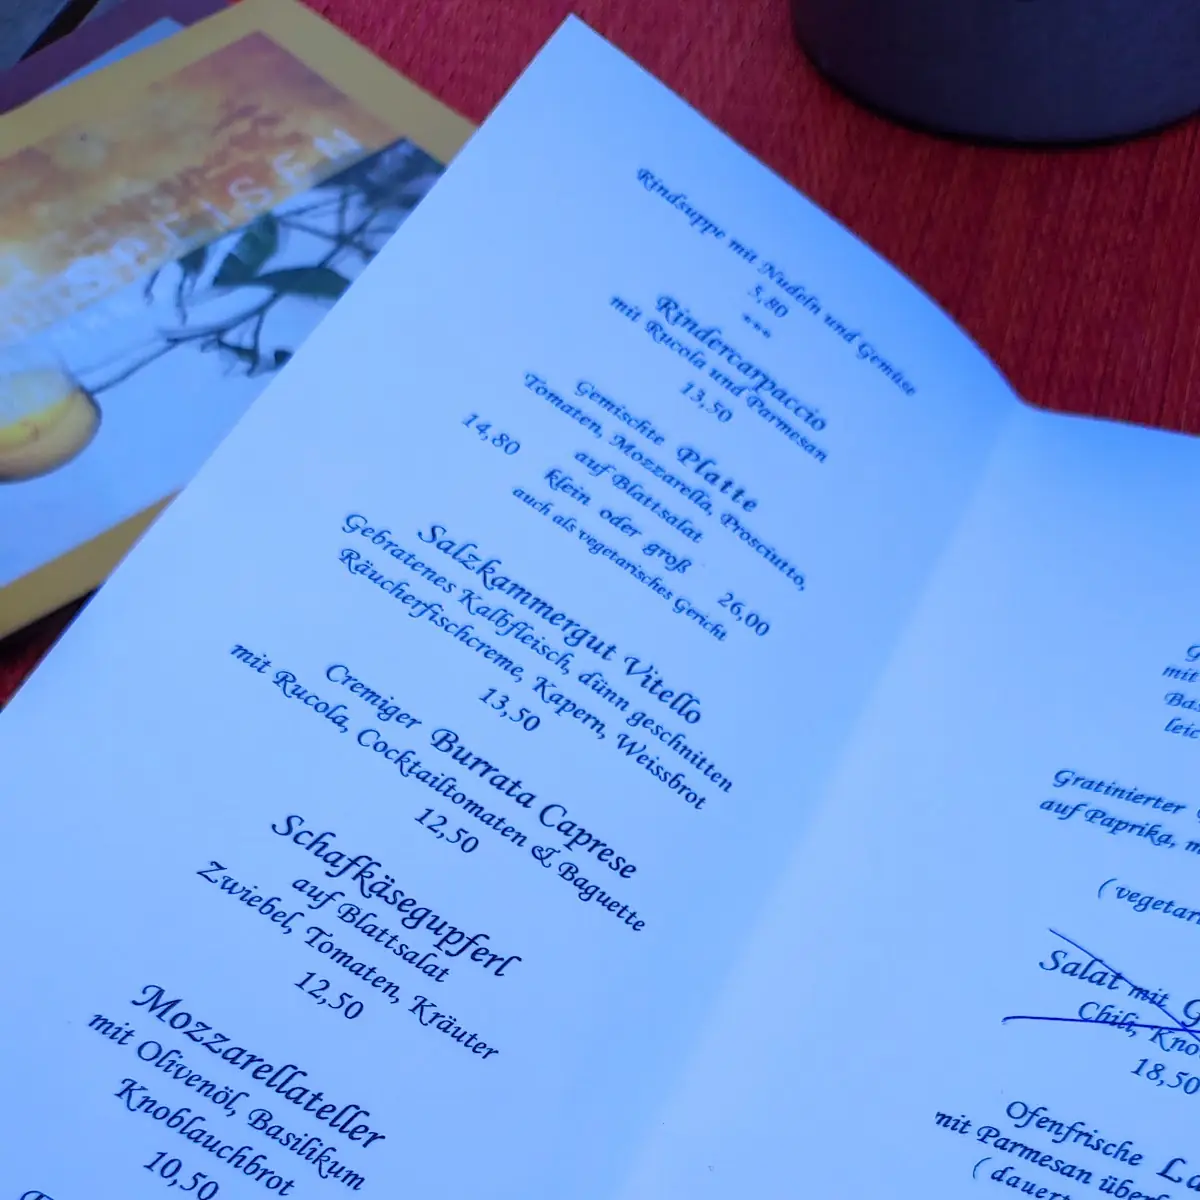 Rindsuppe mit Nudeln und Gemüse
5,80
***
Rindercarpaccio
mit Rucola und Parmesan
13,50
Gemischte Platte
Tomaten, Mozzarella, Prosciutto,
auf Blattsalat
14,80 klein oder groß 26,00
auch als vegetarisches Gericht
Salzkammergut Vitello
Gebratenes Kalbfleisch, dünn geschnitten
Räucherfischcreme, Kapern, Weissbrot
13,50
Cremiger Burrata Caprese
mit Rucola, Cocktailtomaten & Baguette
12,50
Schafkäsegupferl
auf Blattsalat
Zwiebel, Tomaten, Kräuter
12,50
Mozzarellateller
mit Olivenöl, Basilikum
Knoblauchbrot
10,50
mit
Gratinierter
auf Paprika,
Salat mit
Chili,
18,50
Ofenfrische
mit Parmesan